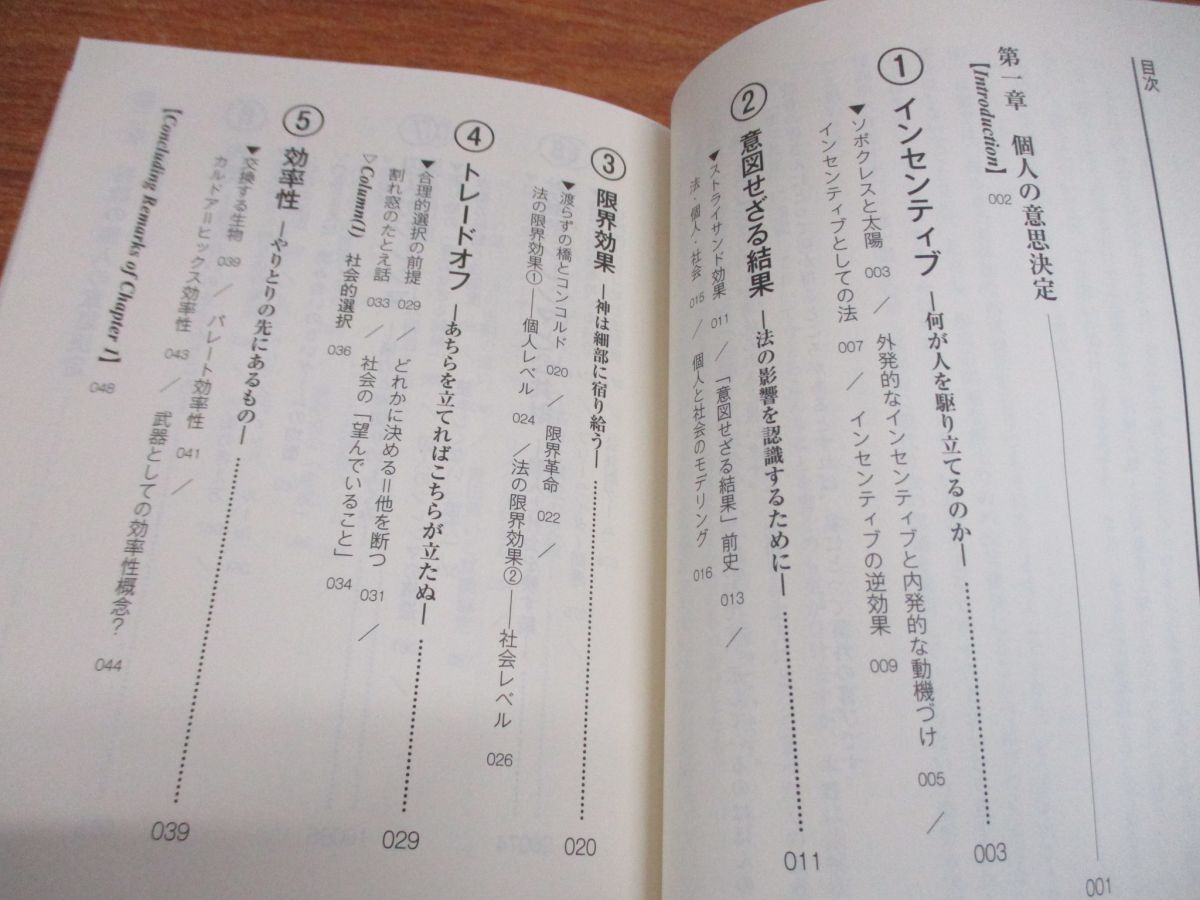 目次
第一章　個人の意思決定 001
【Introduction】 002
① インセンティブ ―何が人を駆り立てるのか― 003
▼ソポクレスと太陽 003 ／ 外発的なインセンティブと内発的な動機づけ 005 ／
インセンティブとしての法 007 ／ インセンティブの逆効果 009
② 意図せざる結果 ―法の影響を認識するために― 011
▼ストライサンド効果 011 ／ 「意図せざる結果」前史 013 ／
法・個人・社会 015 ／ 個人と社会のモデリング 016
③ 限界効果 ―神は細部に宿り給う― 020
▼渡らずの橋とコンコルド 020 ／ 限界革命 022 ／
法の限界効果①――個人レベル 024 ／ 法の限界効果②――社会レベル 026
④ トレードオフ ―あちらを立てればこちらが立たぬ― 029
▼合理的選択の前提 029 ／ どれかに決める＝他を断つ 031 ／
割れ窓のたとえ話 033 ／ 社会の「望んでいること」 034
▽Column(1) 社会的選択 036
⑤ 効率性 ―やりとりの先にあるもの― 039
▼交換する生物 039 ／ パレート効率性 041 ／
カルドア＝ヒックス効率性 043 ／ 武器としての効率性概念？ 044
【Concluding Remarks of Chapter 1】 048